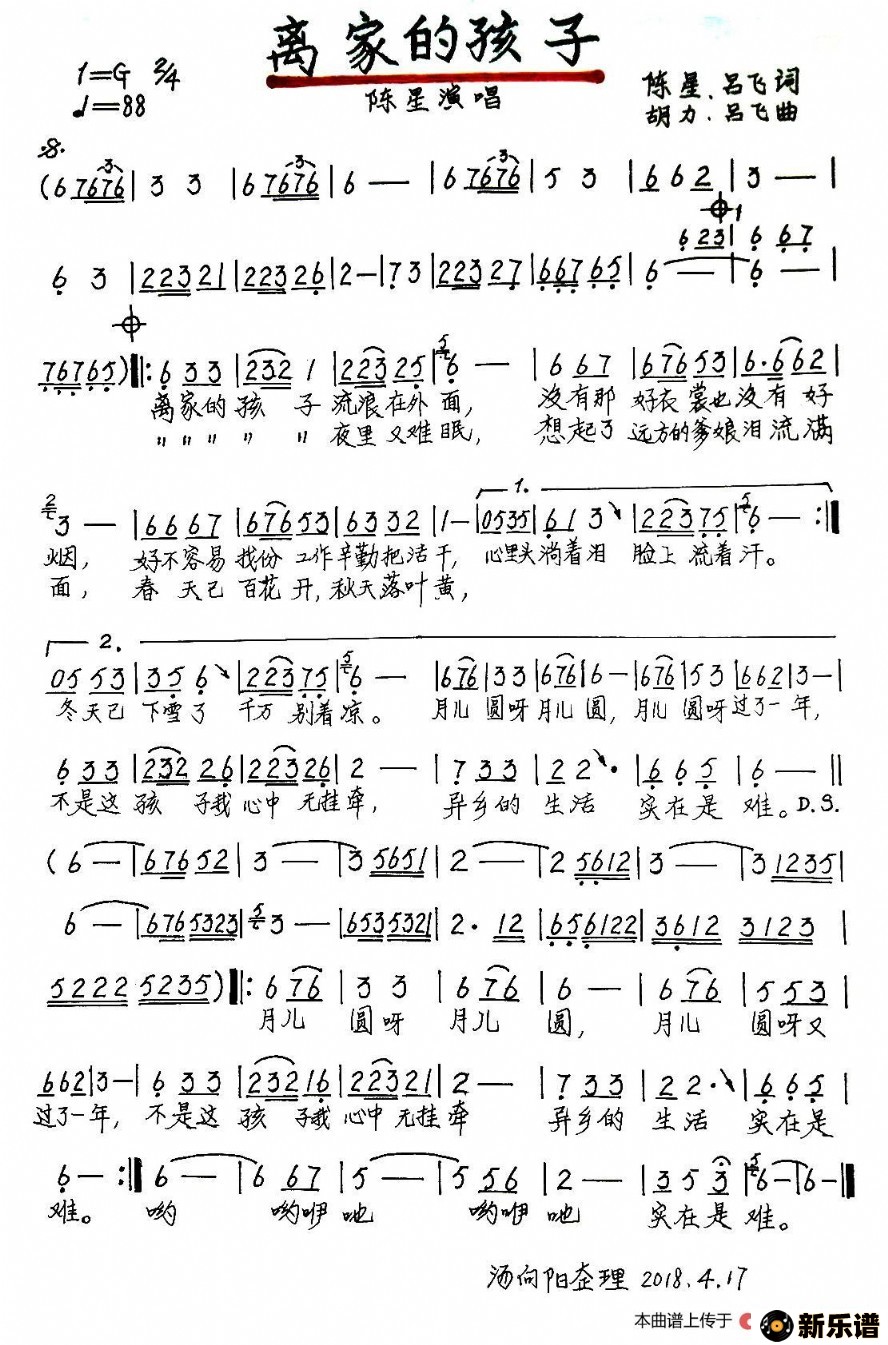 离家的孩子
1=G 2/4
♩=88
陈星演唱
陈星、吕飞词
胡力、吕飞曲
(6 7676 | 3 3 | 6 7676 | 6 — | 6 7676 | 5 3 | 662 | 3 — |
6 23 | 6 67
6 3 | 22321 | 22326 | 2— | 7 3 | 22327 | 66765 | 6 — | 6 — |
76765) ‖: 6 33 | 232 1 | 223 25 | 6 — | 6 67 | 67653 | 6·662 |
离家的孩 子 流浪在外 面， 没有那 好衣裳也没有 好
〃〃〃 〃 〃 夜里又难眠， 想起了 远方的爹娘泪流满
1.
3 — | 6667 | 67653 | 6332 | 1— | 0535 | 61 3 | 22375 | 6 — :‖
烟， 好不容易 找份工作辛勤把活干， 心里头淌着泪 脸上流着汗。
面， 春天已百花开，秋天落叶黄，
2.
05 53 | 35 6 | 22375 | 6 — | 676 | 33 | 676 | 6— | 676 | 53 | 662 | 3— |
冬天已 下雪了 千万别着凉。 月儿圆呀月儿圆，月儿圆呀过了一年，
6 33 | 232 26 | 22326 | 2 — | 7 33 | 22· | 66 5 | 6 — ‖
不是这孩 子我心中无挂牵， 异乡的 生活 实在是 难。D.S.
(6 — | 67652 | 3 — | 3 5651 | 2 — | 2 5612 | 3 — | 3 1235 |
6 — | 6765323 | 3 — | 6535321 | 2· 12 | 656122 | 3612 3123 |
5222 5235) ‖: 6 76 | 3 3 | 6 76 | 6 — | 6 76 | 553 |
月儿 圆呀 月儿 圆， 月儿 圆呀又
662 | 3— | 6 33 | 232 16 | 22321 | 2 — | 7 33 | 22· | 66 5 |
过了一年， 不是这孩 子我心中无挂牵 异乡的 生活 实在是
6 — :‖ 6 — | 6 67 | 5 — | 5 56 | 2 — | 35 3 | 6— | 6— ‖
难。 哟 哟咿吔 哟咿吔 实在是难。
汤向阳整理 2018.4.17
本曲谱上传于
新乐谱